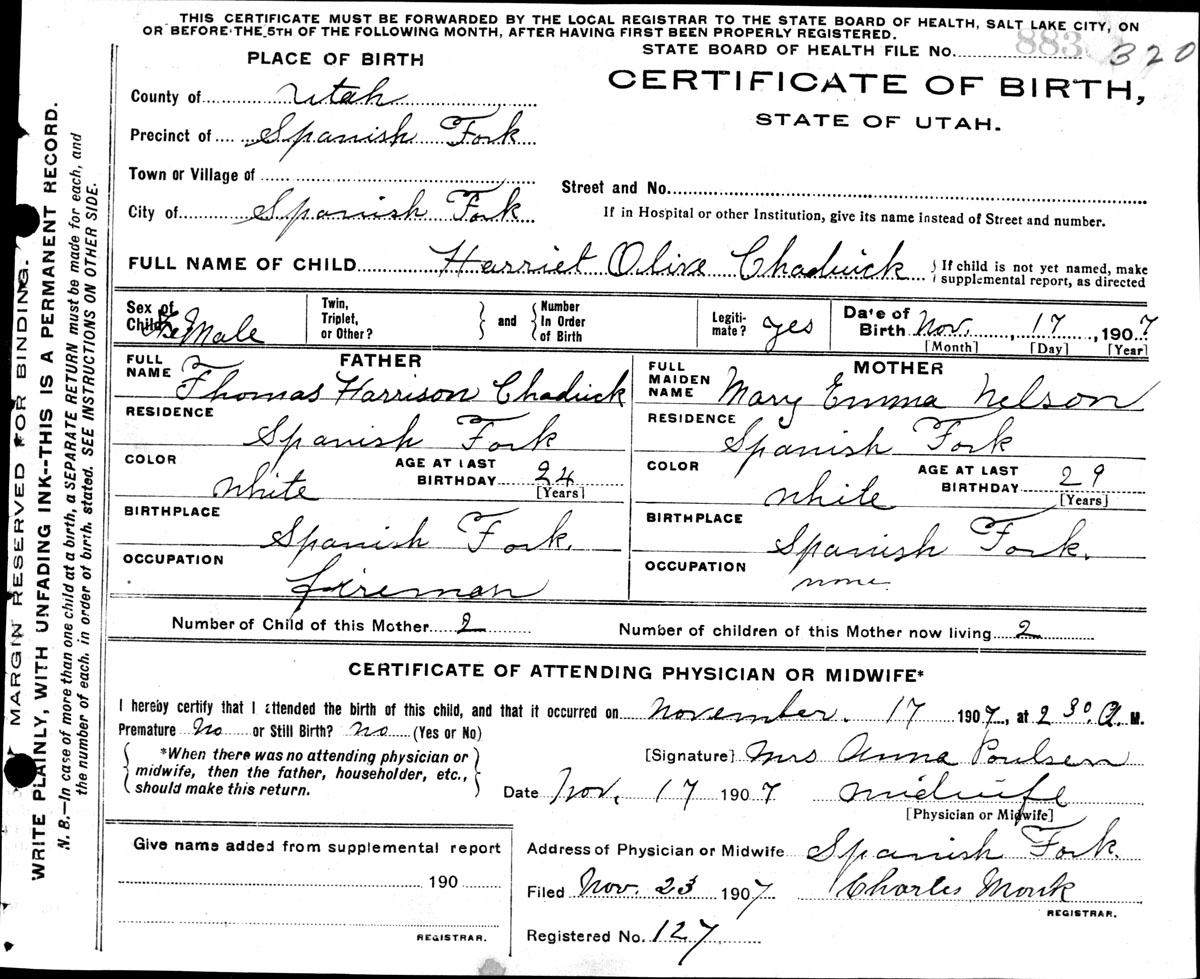 THIS CERTIFICATE MUST BE FORWARDED BY THE LOCAL REGISTRAR TO THE STATE BOARD OF HEALTH, SALT LAKE CITY, ON
OR BEFORE THE 5TH OF THE FOLLOWING MONTH, AFTER HAVING FIRST BEEN PROPERLY REGISTERED.
STATE BOARD OF HEALTH FILE No. 883 320
PLACE OF BIRTH
CERTIFICATE OF BIRTH,
STATE OF UTAH.
County of Utah
Precinct of Spanish Fork
Town or Village of
Street and No.
City of Spanish Fork
If in Hospital or other Institution, give its name instead of Street and number.
FULL NAME OF CHILD Harriet Olive Chadwick
If child is not yet named, make
supplemental report, as directed
Sex of
Child FeMale
Twin,
Triplet,
or Other?
and
Number
In Order
of Birth
Legiti-
mate? yes
Date of
Birth Nov. 17, 1907
[Month] [Day] [Year]
FATHER
FULL
NAME Thomas Harrison Chadwick
RESIDENCE
Spanish Fork
COLOR
white
AGE AT LAST
BIRTHDAY 24
[Years]
BIRTHPLACE
Spanish Fork.
OCCUPATION
fireman
MOTHER
FULL
MAIDEN
NAME Mary Emma Nelson
RESIDENCE
Spanish Fork
COLOR
white
AGE AT LAST
BIRTHDAY 29
[Years]
BIRTHPLACE
Spanish Fork.
OCCUPATION
none
Number of Child of this Mother 2
Number of children of this Mother now living 2
CERTIFICATE OF ATTENDING PHYSICIAN OR MIDWIFE*
I hereby certify that I attended the birth of this child, and that it occurred on November. 17 1907, at 2 30 A M.
Premature No or Still Birth? No (Yes or No)
*When there was no attending physician or
midwife, then the father, householder, etc.,
should make this return.
[Signature] Mrs Anna Poulsen
Date Nov. 17 1907 midwife
[Physician or Midwife]
Give name added from supplemental report
190
REGISTRAR.
Address of Physician or Midwife Spanish Fork.
Filed Nov. 23 1907 Charles Monk
REGISTRAR.
Registered No. 127
MARGIN RESERVED FOR BINDING.
WRITE PLAINLY, WITH UNFADING INK--THIS IS A PERMANENT RECORD.
N. B.—In case of more than one child at a birth, a SEPARATE RETURN must be made for each, and
the number of each, in order of birth, stated. SEE INSTRUCTIONS ON OTHER SIDE.